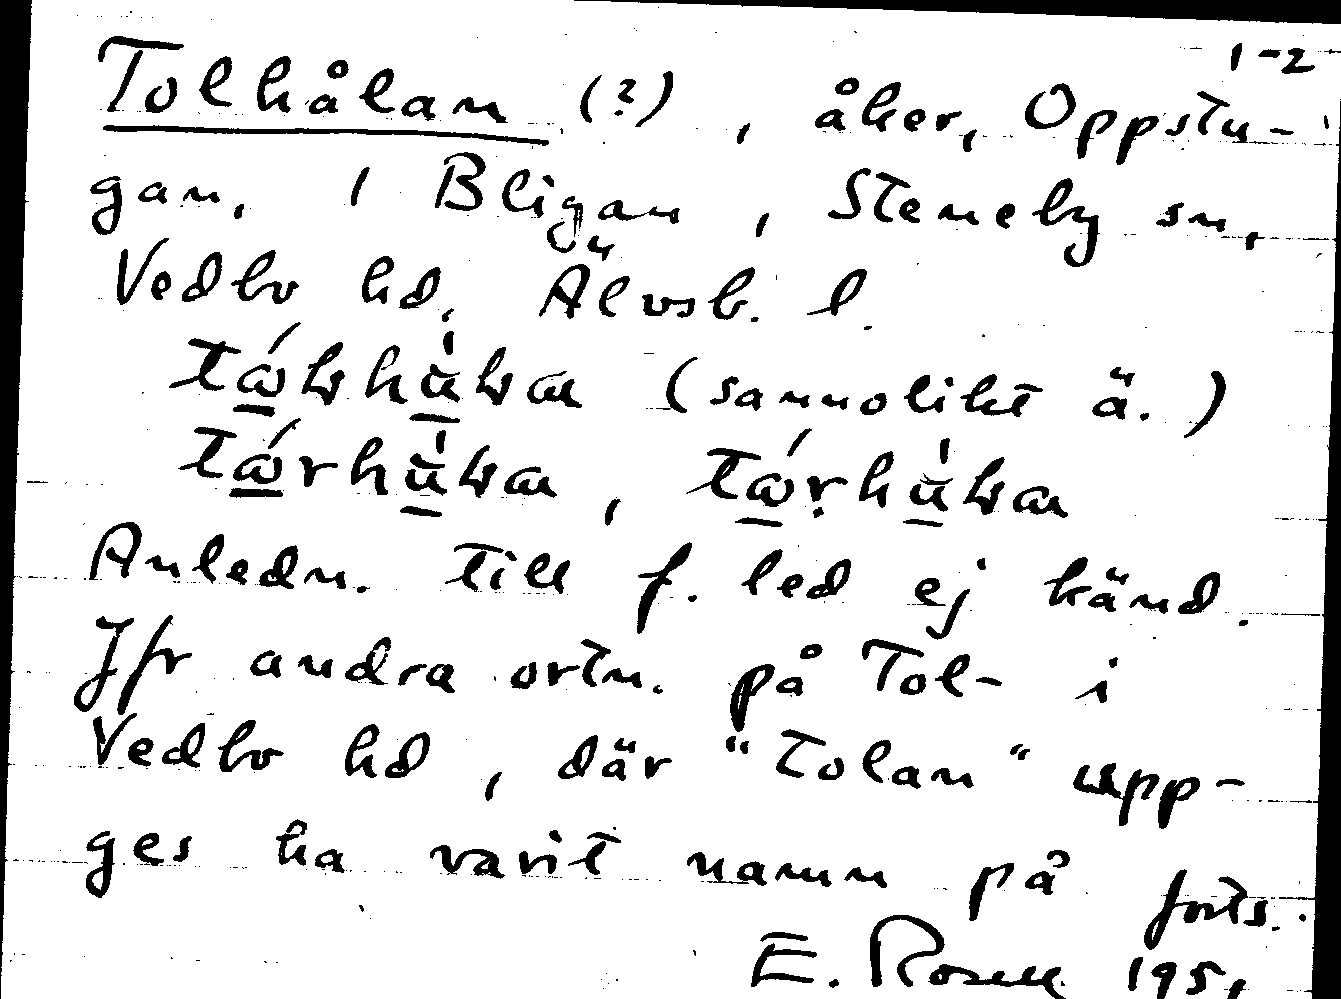 1-2
Tolhålan (?), åker, Oppstu-
gan, 1 Bligan, Steneby sn,
Vedbo hd, Älvsb. l.
(sannolikt ä.)
Anledn. till f. led ej känd.
Jfr andra ortn. på Tol- i
Vedbo hd, där "Tolan" upp-
ges ha varit namn på forts.
E. Rosell 1951